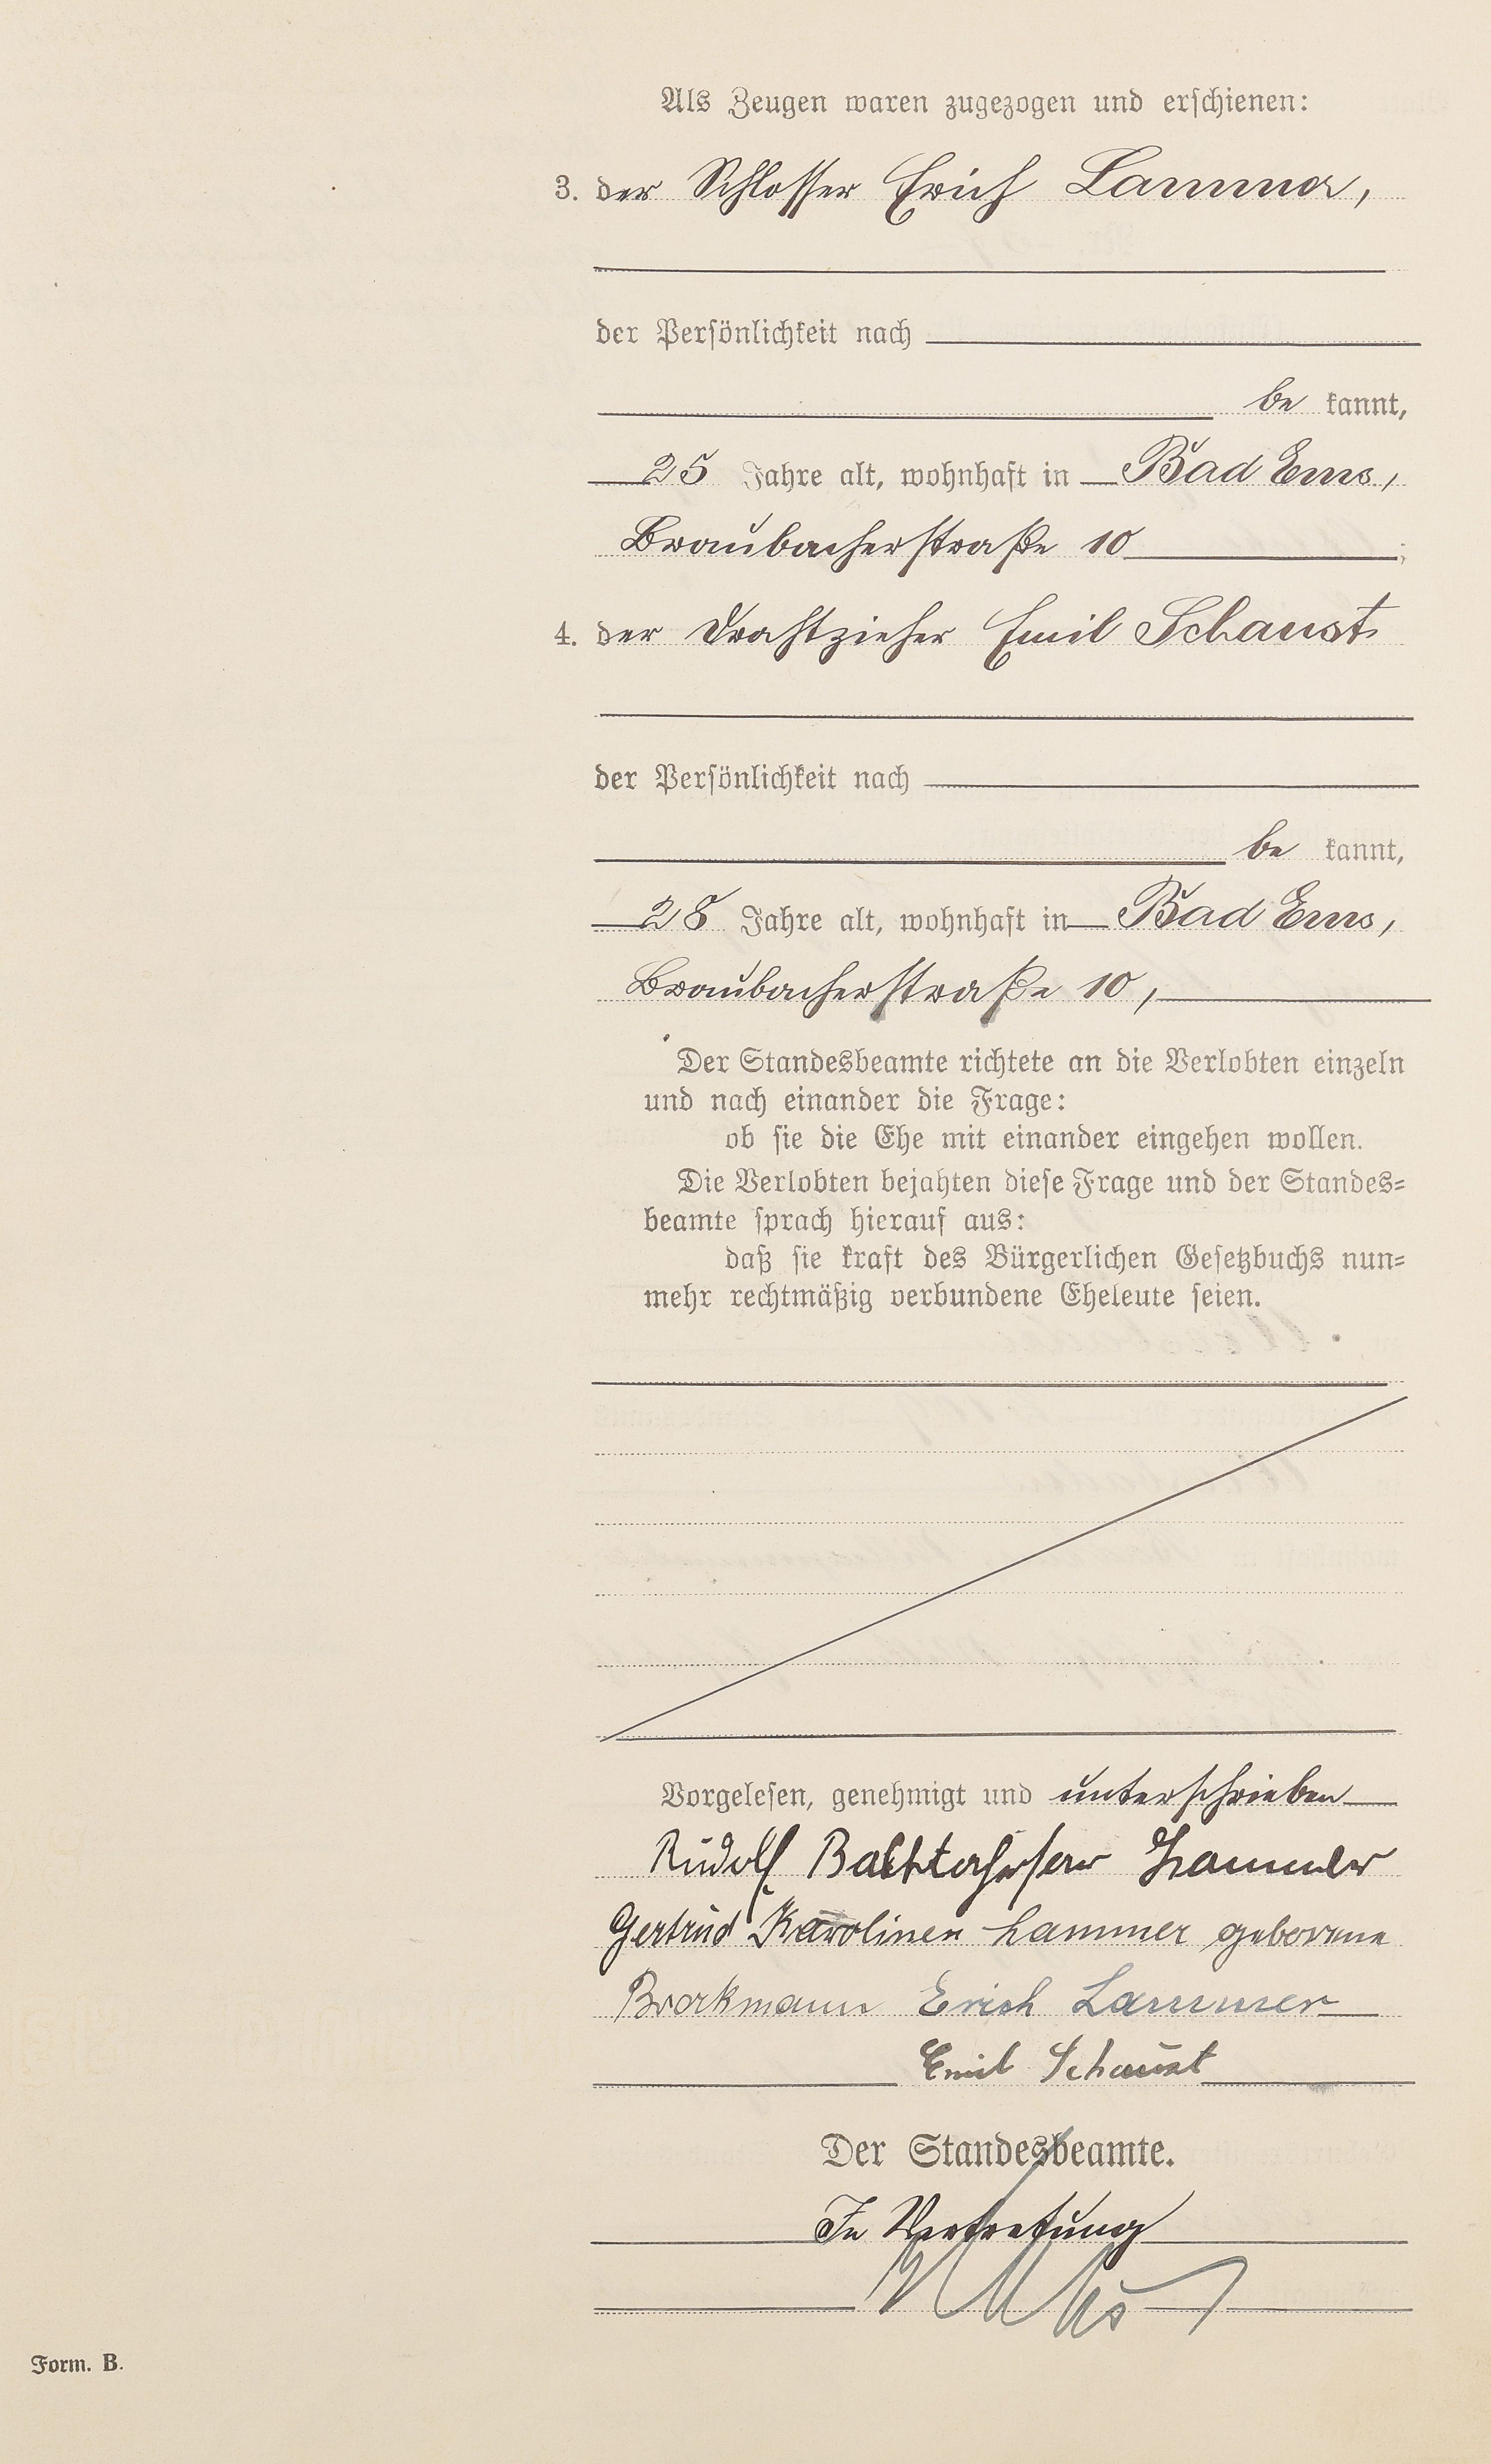 Als Zeugen waren zugezogen und erschienen:
3. der Schlosser Erich Lammer,
der Persönlichkeit nach
be kannt,
25 Jahre alt, wohnhaft in Bad Ems,
Braubacherstraße 10 ;
4. der Drahtzieher Emil Schaust
der Persönlichkeit nach
be kannt,
28 Jahre alt, wohnhaft in Bad Ems,
Braubacherstraße 10,
Der Standesbeamte richtete an die Verlobten einzeln
und nach einander die Frage:
ob sie die Ehe mit einander eingehen wollen.
Die Verlobten bejahten diese Frage und der Standes=
beamte sprach hierauf aus:
daß sie kraft des Bürgerlichen Gesetzbuchs nun=
mehr rechtmäßig verbundene Eheleute seien.
Vorgelesen, genehmigt und unterschrieben
Rudolf Lammer
Gertrud Karolinen Lammer geborene
Brockmann Erich Lammer
Emil Schaust
Der Standesbeamte.
In Vertretung
Form. B.